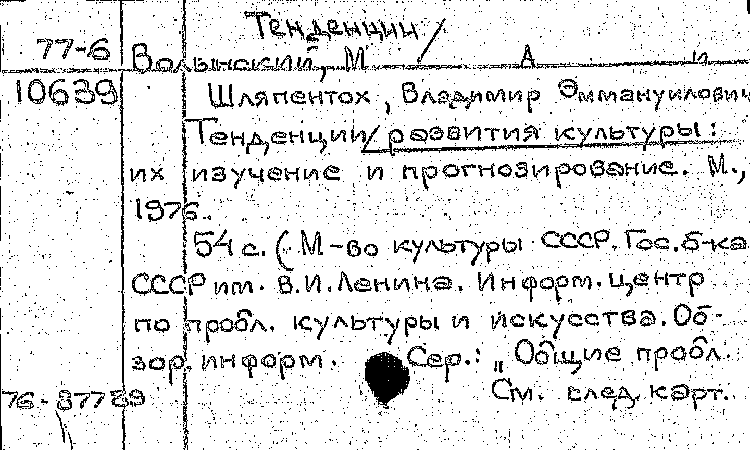 Тенденции /
77-6 Волынский, М А и
10639 Шляпентох, Владимир Эммануилович
Тенденции/ развития культуры:
их изучение и прогнозирование. М.,
1976.
54 с. (М-во культуры СССР. Гос. б-ка
СССР им. В.И.Ленина. Информ. центр
по пробл. культуры и искусства. Об-
зор. информ. Сер.: „Общие пробл.
76-37729 См. след. карт.